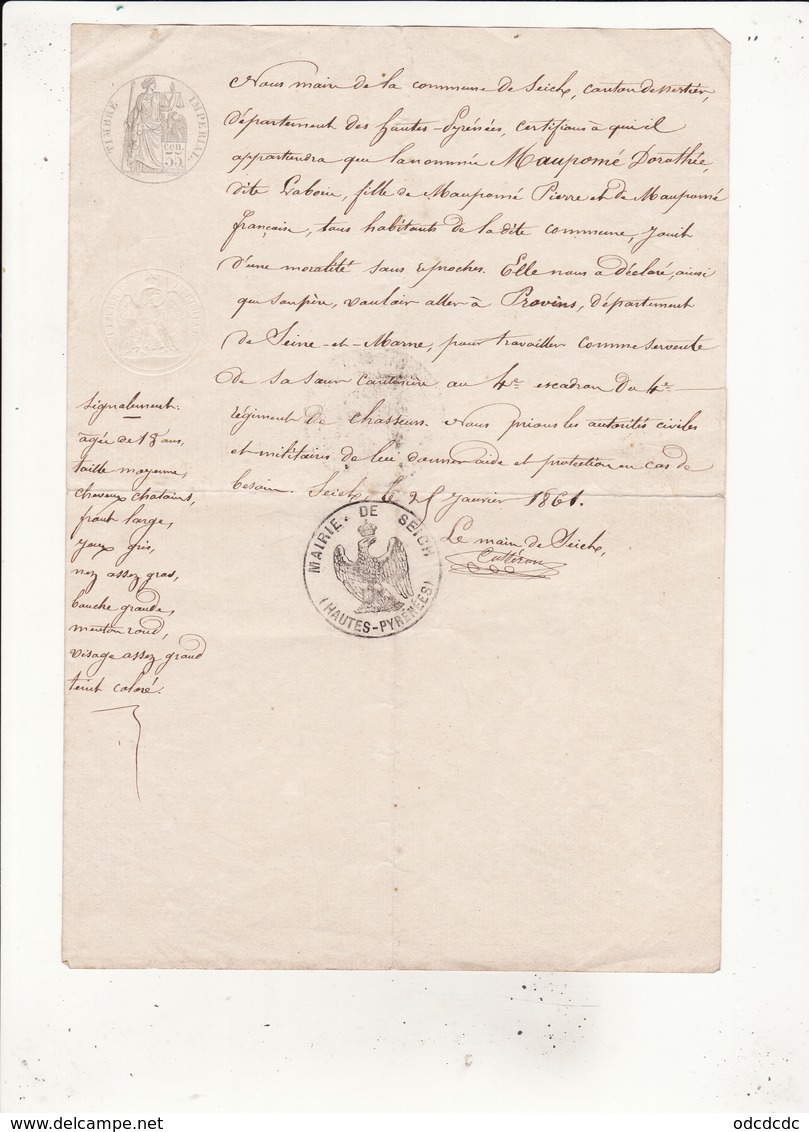 TIMBRE IMPERIAL
cen.
35
Nous maire de la commune de Seich, canton de Nestier,
département des hautes-Pyrénées, certifions à qui il
appartiendra que la nommée Maupomé Dorothée,
dite Laborie, fille de Maupomé Pierre et de Maupomé
françoise, tous habitants de la dite commune, jouit
d'une moralité sans reproches. Elle nous a déclaré, ainsi
que son père, vouloir aller à Provins, département
de Seine-et-Marne, pour travailler comme servente
de sa sœur cantinière au 4e escadron du 4e
régiment de chasseurs. Nous prions les autorités civiles
et militaires de lui donner aide et protection en cas de
besoin. Seich, le 25 Janvier 1861.
Le maire de Seich,
MAIRIE DE SEICH
(HAUTES-PYRÉNÉES)
Signalement:
agée de 18 ans,
taille moyenne,
cheveux chatains,
front large,
yeux gris,
nez assez gros,
bouche grande,
menton rond,
visage assez grand
teint coloré.
odcdcdc